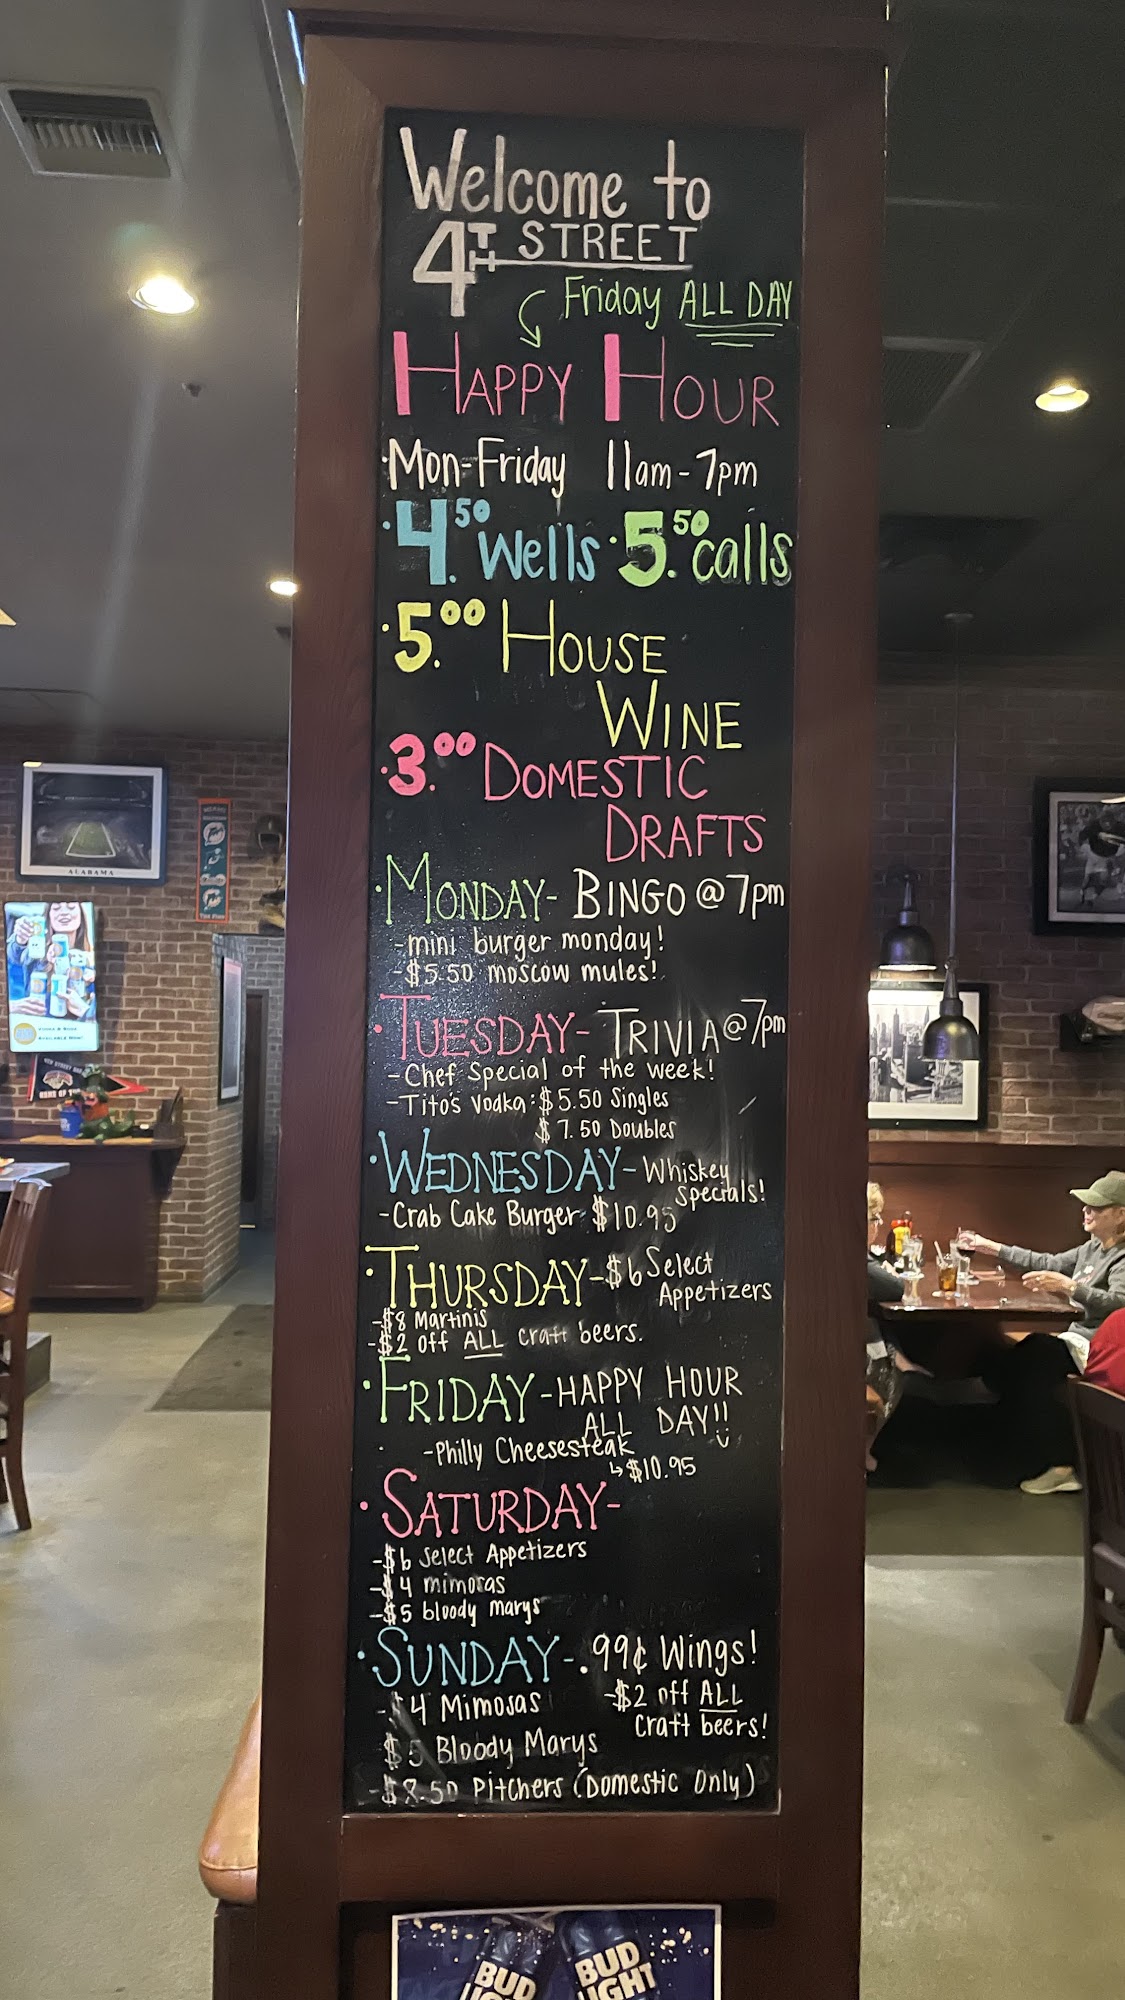 Welcome to
4TH STREET
Friday ALL DAY
HAPPY HOUR
·Mon-Friday 11am-7pm
·4.50 Wells ·5.50 calls
·5.00 HOUSE
WINE
·3.00 DOMESTIC
DRAFTS
·MONDAY- BINGO @ 7pm
-mini burger monday!
-$5.50 moscow mules!
·TUESDAY- TRIVIA @ 7pm
-Chef Special of the week!
-Tito's Vodka: $5.50 Singles
$7.50 Doubles
·WEDNESDAY- Whiskey
Specials!
-Crab Cake Burger $10.95
·THURSDAY-$6 Select
Appetizers
-$8 Martinis
-$2 off ALL craft beers.
·FRIDAY-HAPPY HOUR
ALL DAY!!
-Philly Cheesesteak
↳$10.95
·SATURDAY-
-$6 Select Appetizers
-$4 mimosas
-$5 bloody marys
·SUNDAY-.99¢ Wings!
-$4 Mimosas
-$2 off ALL
craft beers!
$5 Bloody Marys
-$8.50 Pitchers (Domestic Only)
ALABAMA
VODKA & SODA
AVAILABLE NOW!
BUD
LIGHT
BUD
LIGHT